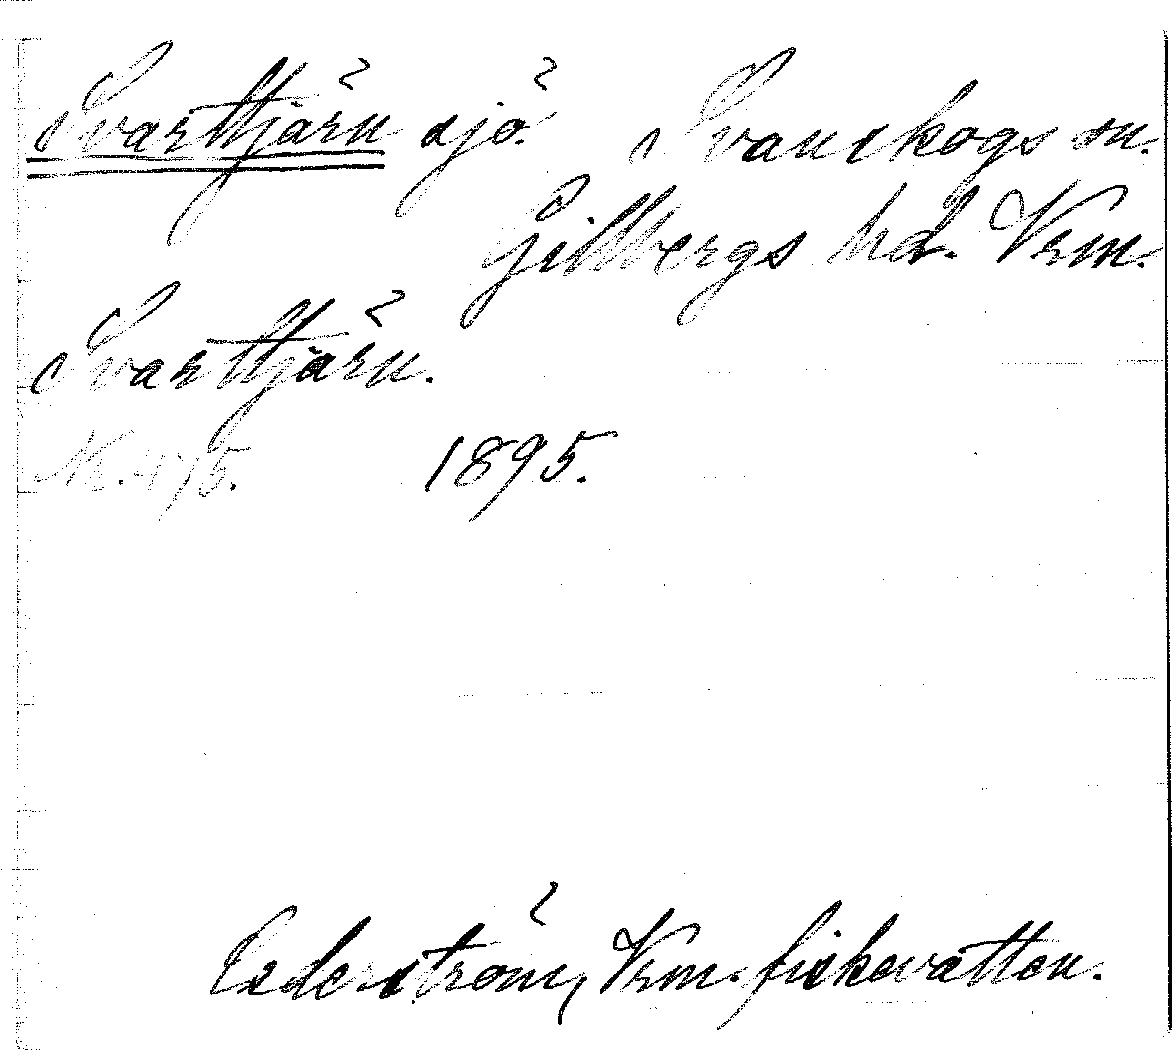 Svarttjärn sjö Svanskogs sn.
Gillbergs hd. Vrm.
Svarttjärn.
Nr. 475. 1895.
Cederström, Vrm. fiskevatten.